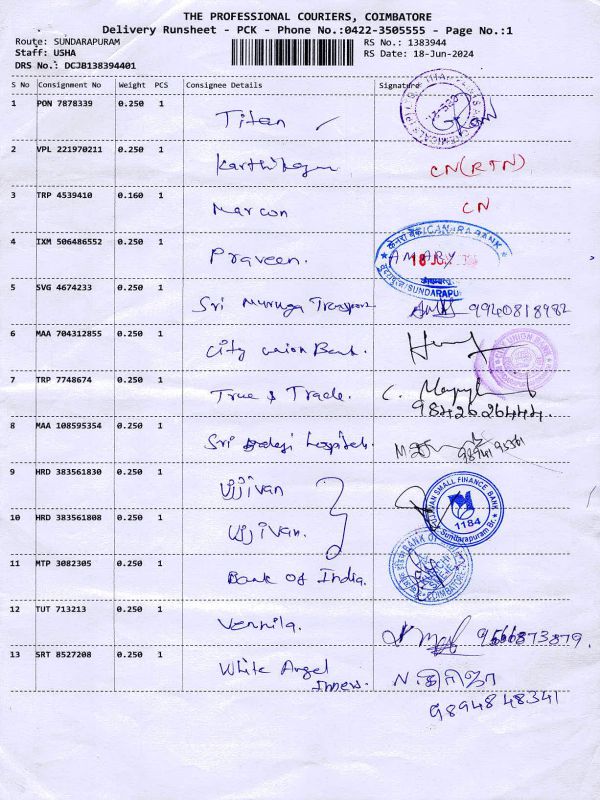 THE PROFESSIONAL COURIERS, COIMBATORE
Delivery Runsheet - PCK - Phone No.:0422-3505555 - Page No.:1
Route: SUNDARAPURAM RS No.: 1383944
Staff: USHA RS Date: 18-Jun-2024
DRS No.: DCJB138394401
S No Consignment No Weight PCS Consignee Details Signature
1 PON 7878339 0.250 1 Titan
2 VPL 221970211 0.250 1 Karthikeyan CN(RTN)
3 TRP 4539410 0.160 1 Marcon CN
4 IXM 506486552 0.250 1 Praveen. CANARA BANK
SUNDARAPU
5 SVG 4674233 0.250 1 Sri Muruga Transport 9940818982
6 MAA 704312855 0.250 1 City union Bank. CITY UNION BANK
7 TRP 7748674 0.250 1 True & Trade. C.
9842626444.
8 MAA 108595354 0.250 1 Sri Balaji hospitals.
9 HRD 383561830 0.250 1 Ujjivan SMALL FINANCE BANK
1184
Sundarapuram Br.
10 HRD 383561808 0.250 1 Ujjivan.
11 MTP 3082305 0.250 1 Bank of India. BANK OF
COIMBATORE
12 TUT 713213 0.250 1 Vennila. 9566873879.
13 SRT 8527208 0.250 1 White Angel
Innew. N. கிரிஜா
9894848341